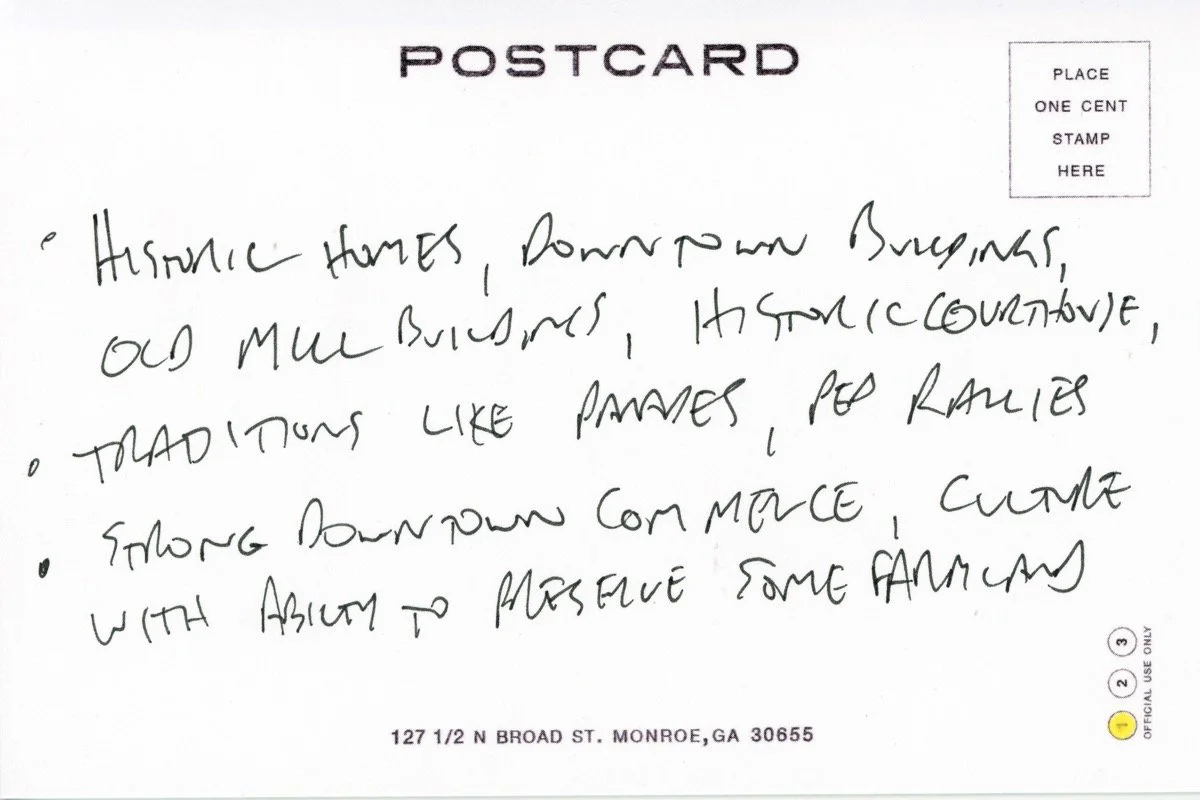 POSTCARD
PLACE
ONE CENT
STAMP
HERE
• HISTORIC HOMES, DOWNTOWN BUILDINGS,
OLD MILL BUILDINGS, HISTORIC COURTHOUSE,
• TRADITIONS LIKE PARADES, PEP RALLIES
• STRONG DOWNTOWN COMMERCE, CULTURE
WITH ABILITY TO PRESERVE SOME FARMLAND
1 2 3
OFFICIAL USE ONLY
127 1/2 N BROAD ST. MONROE,GA 30655